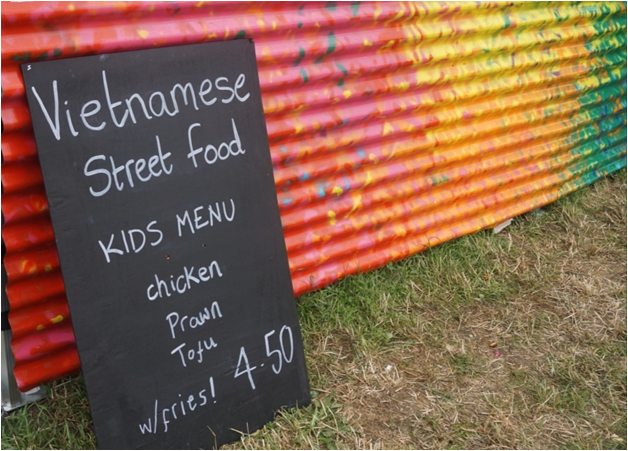 Vietnamese
Street food
KIDS MENU
chicken
Prawn
Tofu
w/fries! 4.50